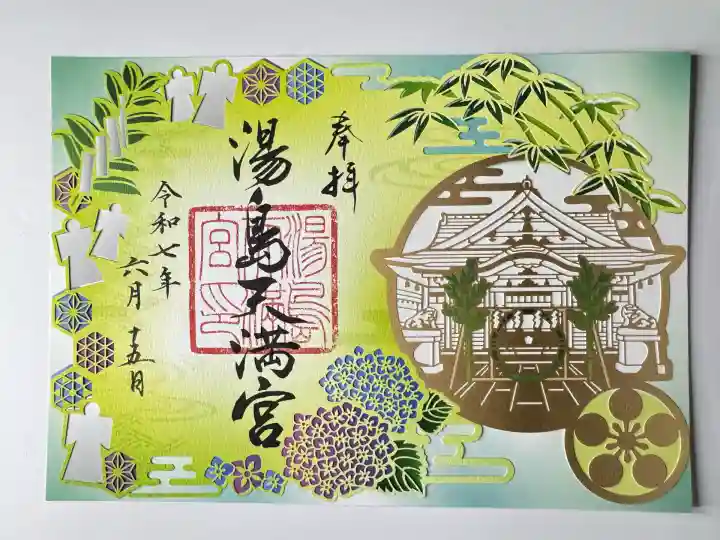 奉拝
湯島天満宮
令和七年
六月十五日